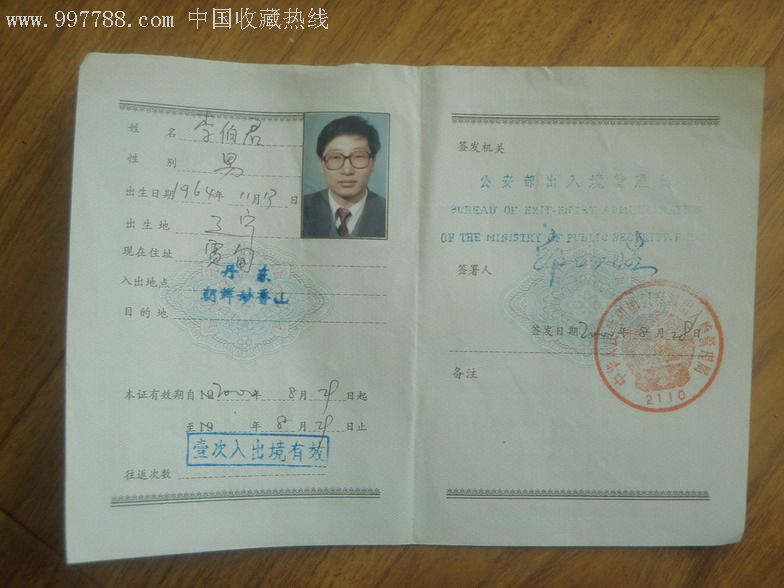 www.997788.com 中国收藏热线
姓 名 李伯君
性 别 男
出生日期 1964年 11月13日
出 生 地 辽宁
现在住址 宽甸
入出地点 丹 东
目 的 地 朝鲜妙香山
本证有效期自19 2000年 8月29日起
至19 年 8月29日止
壹次入出境有效
往返次数
签发机关
公安部出入境管理局
BUREAU OF EXIT-ENTRY ADMINISTRATION
OF THE MINISTRY OF PUBLIC SECURITY.P.R.C
签署人
签发日期2000年8月28日
备注
2110